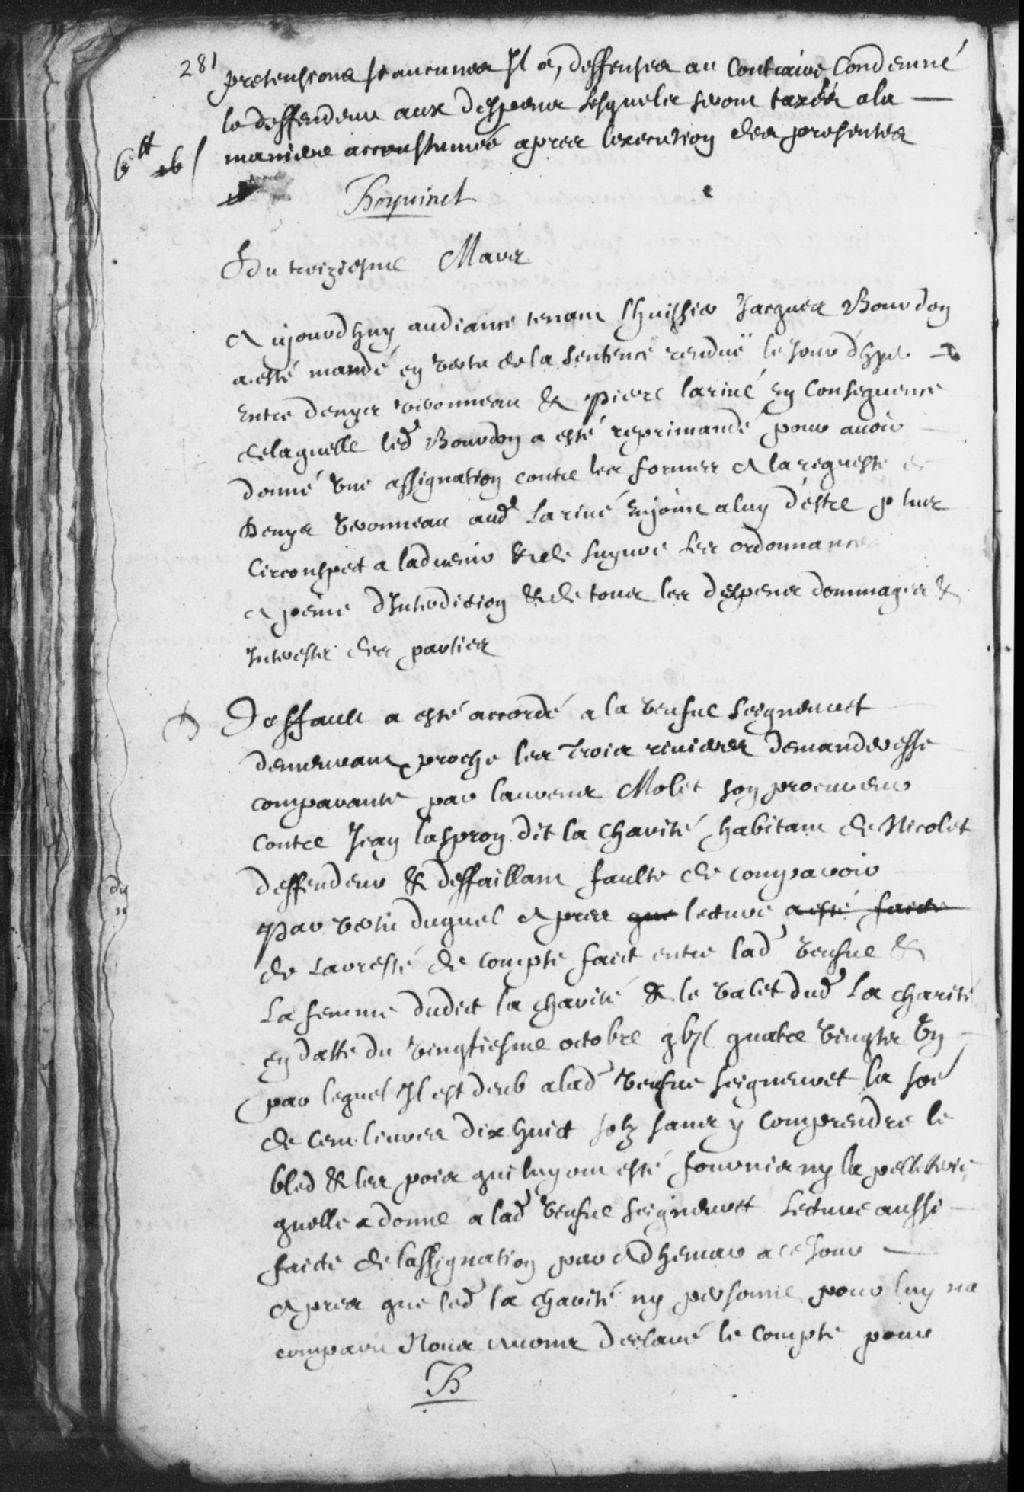 281
pretensions sy aucunes Il a, deffenses au contraire, Condemné
le deffendeur aux despens lesquels seront taxés a la
maniere accoustumée apres lexecution des presentes
6tt
Boyvinet
Du troiziesme Mars
Aujourdhuy audiance tenant Lhuissier Jacques Bourdon
a esté mandé en vertu de la sentence renduë le jour d'hyer
Entre Denys vivonneau & Pierre lariué En Consequence
de laquelle led Bourdon a esté reprimandé pour auoir
donné vne assignation contre les formes A la requeste de
Denys vivonneau aud Lariué Enjoint a luy d'estre plus
Circonspect a laduenir & de suyure Les ordonnances
A peine d'Interdiction & de tous les despens dommages &
Interests des parties
Deffault a esté accordé a la veufue Seigneuret
demeurant proche les Trois riuieres demanderesse
comparante par laurens Molet son procureur
contre Jean laspron dit la charité habitant de Nicolet
deffendeur & deffaillant faulte de comparoir
du
Par vertu duquel Apres que lecture a esté faicte
de Larresté de compte faict entre lad veufue &
La femme dudict la charité & le valet dud La charité
en datte du vingtiesme octobre gbjc quatre vingts vn
par lequel Il est deub a lad veufue seigneuret la soe
de cent liures dix huict solz sans y comprendre le
bled & les pois qui luy ont esté fournis ny la pelleterie
quelle a donné a lad veufue seigneuret Lecture aussi
faicte de lassignation par Adhemar a ce jour
Apres que led la charité ny personne pour luy na
comparu Nous auons desclaré le compte pour
B